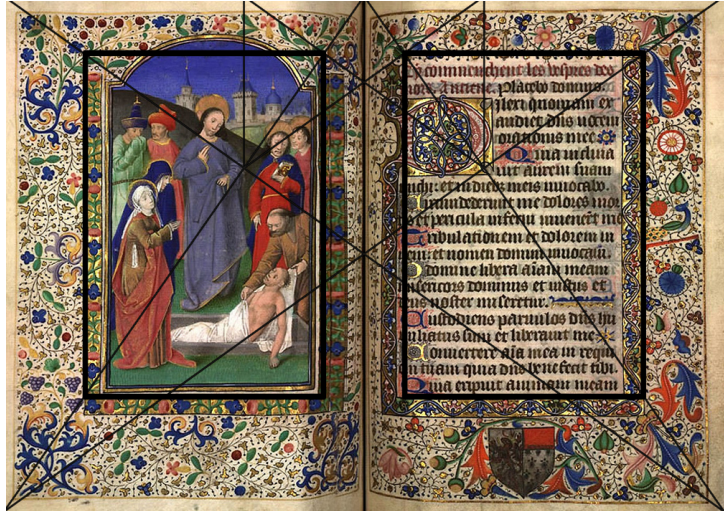 commenchent les vespres des
mors Antene. Placebo domino.
ilexi quoniam ex
audiet dns vocem
orationis mee.
Quia inclina
vit aurem suam
michi: et in dieb meis invocabo.
me dolores mor
et pericula inferni invenerut me
Tribulationem et dolorem in
veni: et nomen domini invocavi
O domine libera aiam meam
misericors dominus et iustus et
deus noster miseretur.
Custodiens parvulos dns hu
miliatus sum et liberavit me
Convertere aia mea in requie
tuam quia dns benefecit tibi.
Quia eripuit animam meam